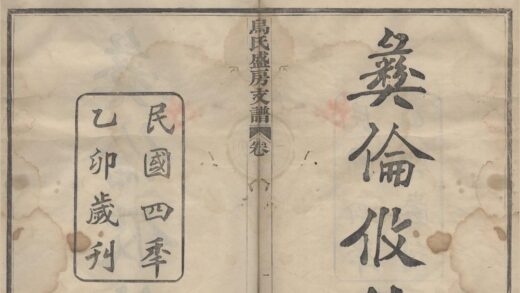 彝倫攸
烏氏盛房支譜 卷
民國四年
乙卯歲刊